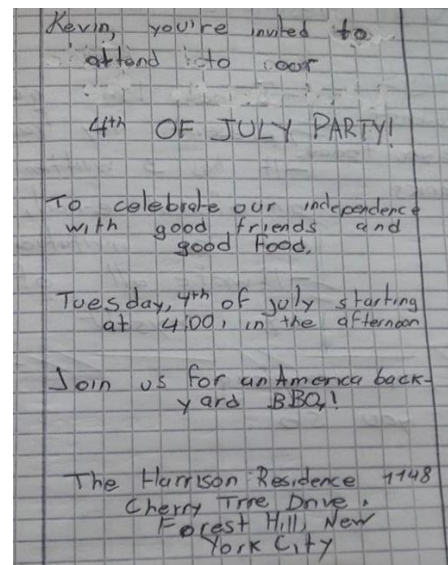 Kevin, you're invited to
attend to our
4th OF JULY PARTY!
To celebrate our independence
with good friends and
good Food.
Tuesday, 4th of july starting
at 4:00, in the afternoon
Join us for an America back-
yard BBQ!
The Harrison Residence 1148
Cherry Tree Drive.
Forest Hill, New
York City